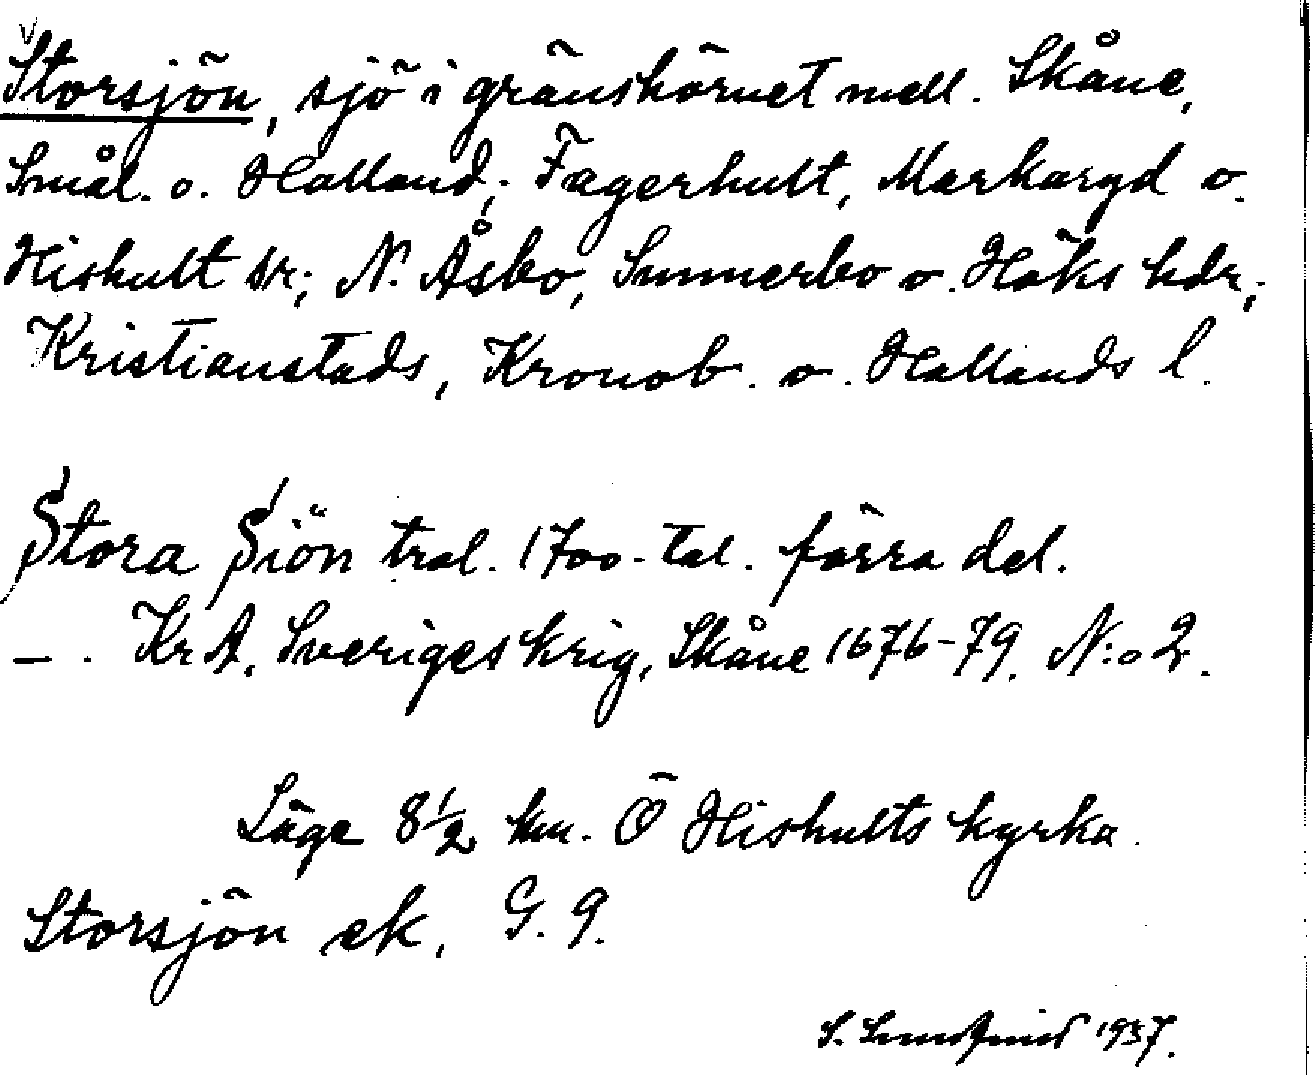 Storsjön, sjö i gränshörnet mell. Skåne,
Smål. o. Halland; Fagerhult, Markaryd o.
Hishult sn; N. Åsbo, Sunnerbo o. Höks hdr;
Kristianstads, Kronob. o. Hallands l.
Stora Siön trol. 1700-tal. förra del.
— . KrA. Sveriges krig, Skåne 1676-79. N:o 2.
Läge 8 1/2 km. Ö Hishults kyrka.
Storsjön ek. G. 9.
S. 1937.